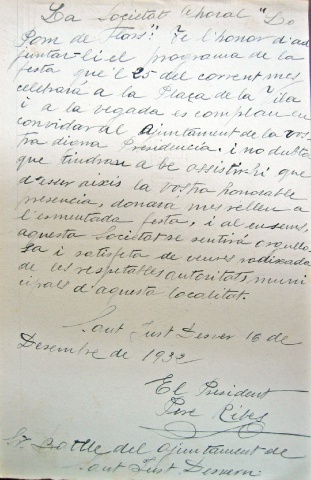 La Societat Choral "Lo
Pom de Flors" Te l'honor d'ad
juntar-li el programa de la
festa que'l 25 del corrent mes
celebrarà a la Plaça de la Vila
i a la vegada es complau en
convidar al Ajuntament de la vos
tra digna Presidencia. i no dubta
que tindran a be assistir-hi que
d'esser aixis la vostra honorable
presencia, donara mes relleu a
l'esmentada festa, i al ensems,
aquesta Societat se sentirà orgullo
sa i satisfeta de veures rodejada
de les respetables autoritats muni
cipals d'aquesta localitat.
Sant Just Desvern 16 de
Desembre de 1932
El President
Pere Ribes
Sr Batlle del Ajuntament de
Sant Just Desvern.